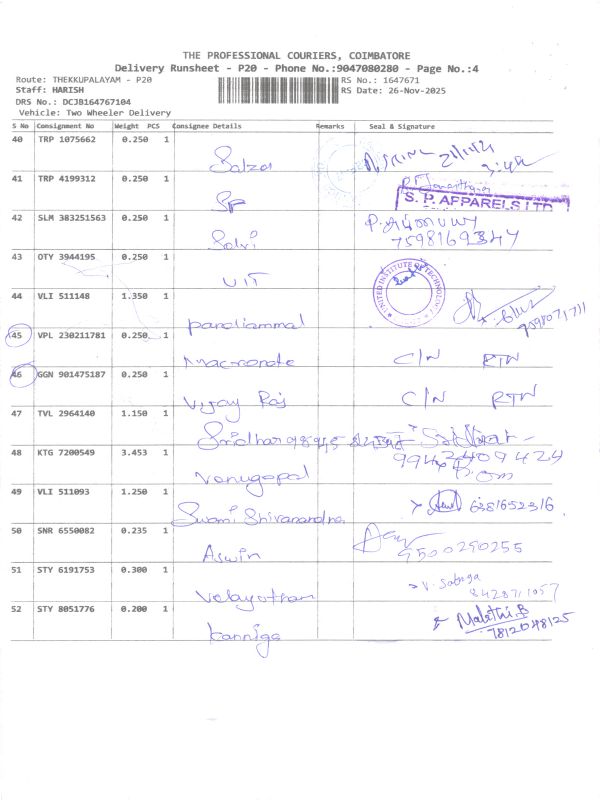 THE PROFESSIONAL COURIERS, COIMBATORE
Delivery Runsheet - P20 - Phone No.:9047080280 - Page No.:4
Route: THEKKUPALAYAM - P20 RS No.: 1647671
Staff: HARISH RS Date: 26-Nov-2025
DRS No.: DCJB164767104
Vehicle: Two Wheeler Delivery
S No Consignment No Weight PCS Consignee Details Remarks Seal & Signature
40 TRP 1075662 0.250 1
Salzer
41 TRP 4199312 0.250 1
SP S. P. APPARELS LTD
42 SLM 383251563 0.250 1
Selvi 7598169347
43 OTY 3944195 0.250 1
UIT UNITED INSTITUTE OF TECHNOLOGY
44 VLI 511148 1.350 1
Paraliammal
45 VPL 230211781 0.250 1
Macronate C/N RTN
46 GGN 901475187 0.250 1
Vijay Raj C/N RTN
47 TVL 2964140 1.150 1
Sridhar
48 KTG 7200549 3.453 1
Venugopal
49 VLI 511093 1.250 1
Swami Shivanandha 6381652316
50 SNR 6550082 0.235 1
Aswin 9500290255
51 STY 6191753 0.300 1
Velayothan
52 STY 8051776 0.200 1
Kanniga Malathi.B
7812048125